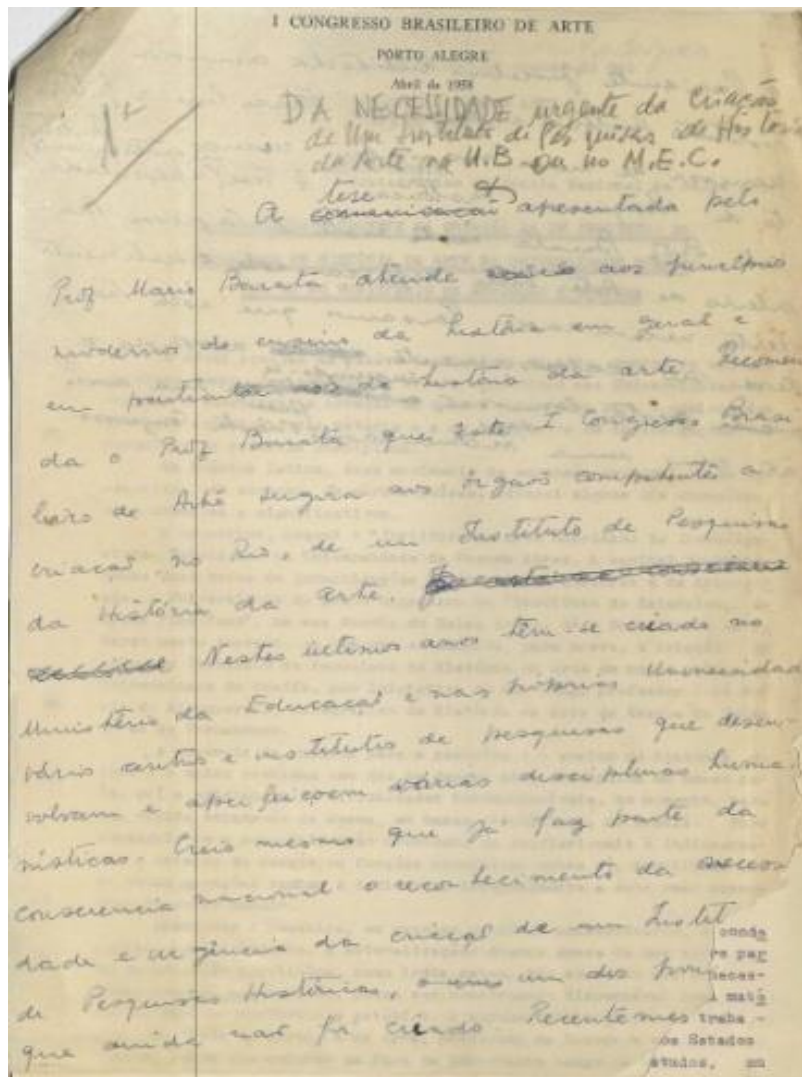 I CONGRESSO BRASILEIRO DE ARTE
PORTO ALEGRE
Abril de 1958
1ª
DA NECESSIDADE urgente da Criação
de Um Instituto de Pesquisas de Historia
da Arte na U.B. ou no M.E.C.
tese
A comunicação apresentada pelo
Prof Mario Barata atende aos principios
modernos do ensino da história em geral e
em particular da história da arte. Recomen
da o Prof Barata que este I Congresso Brasi
leiro de Arte sugira aos órgãos competentes a
criação no Rio, de um Instituto de Pesquisas
da História da arte.
Nestes ultimos anos têm-se criado no
Ministério da Educação e nas próprias Universidades
vários centros e institutos de pesquisas que desen-
volvam e aperfeiçoem várias disciplinas huma-
nisticas. Creio mesmo que já faz parte da
consciencia nacional o reconhecimento da necessi
dade e urgência da criação de um Instit
de Pesquisas Históricas,
que ainda não foi criado Recentemen
traba-
os Estados
studos, em